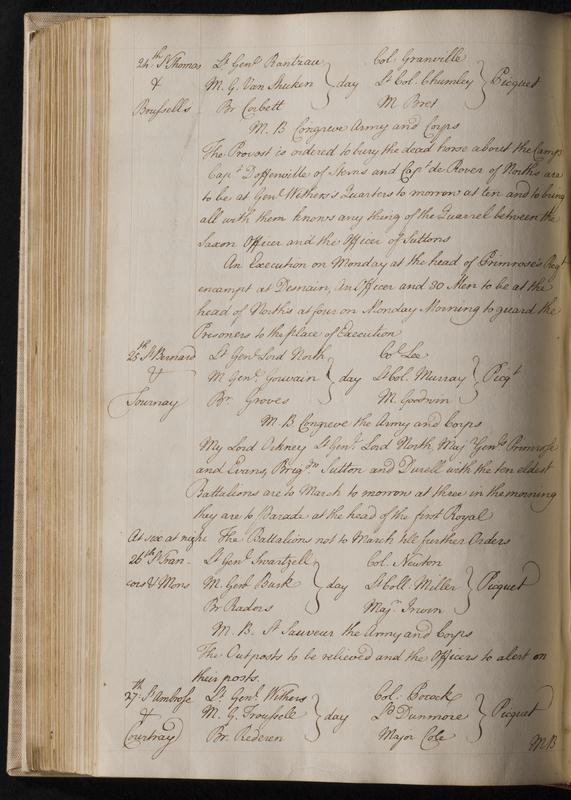 24th St Thomas Lt Genl Rantzau Col: Granville
& M. G. Van Shuken } day Lt Col. Chumley } Picquet
Brussells Br Corbett M Bret
M. B Congreve Army and Corps
The Provost is ordered to bury the dead horse about the Camp
Capt Doffenville of Sterns and Capt de Rover of Norths are
to be at Genl Withers's Quarters to morrow at ten and to bring
all with them knows any thing of the Quarrel between the
Saxon Officer and the Officer of Suttons
An Execution on Monday at the head of Primrose's Regt
encampt at Desnain, An Officer and 30 Men to be at the
head of North's at four on Monday Morning to guard the
Prisoners to the place of Execution
25th St Bernard Lt Genl Lord North Col Lee
& M Genl Gouvain } day Lt Col. Murray } Picqt
Tournay Br. Groves M. Goodwin
M. B Congreve the Army and Corps
My Lord Orkney Lt Genl Lord North, Maj Genls Primrose
and Evans, Brigdrs Sutton and Durell with the ten eldest
Battalions are to March to morrow at three in the morning
they are to Parade at the head of the first Royal
At sex at night The Battalions not to March till further Orders
26th St Fran- Lt Genl Swartzell Col. Newton
cois & Mons M. Genl Burk } day Lt Coll. Miller } Picquet
Br Radors Majr Irwin
M. B. St Sauveur the Army and Corps
The Outposts to be relieved and the Officers to alert on
their posts.
27th St Ambrose Lt Genl Withers Col. Pocock
& M. G. Froussell } day Ld Dunmore } Picquet
Courtray Br. Rederen Major Cole
M B